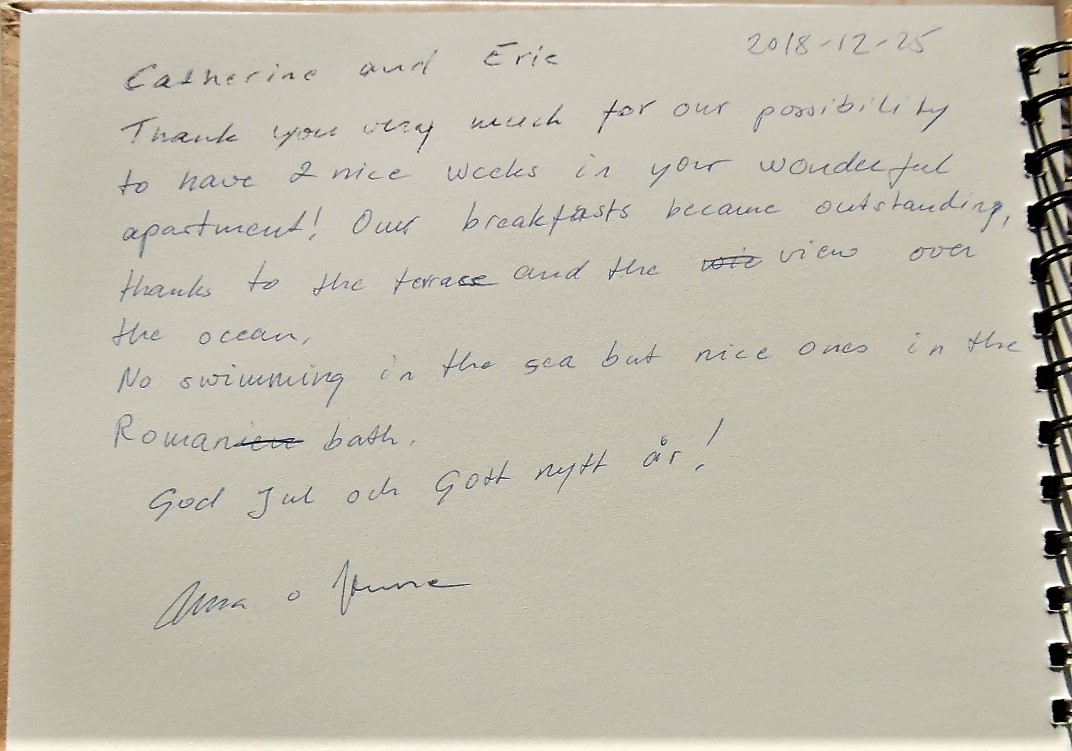 2018-12-25
Catherine and Eric
Thank you very much for our possibility
to have 2 nice weeks in your wonderful
apartment! Our breakfasts became outstanding,
thanks to the terrace and the view over
the ocean,
No swimming in the sea but nice ones in the
Roman bath.
God Jul och Gott nytt år!
o